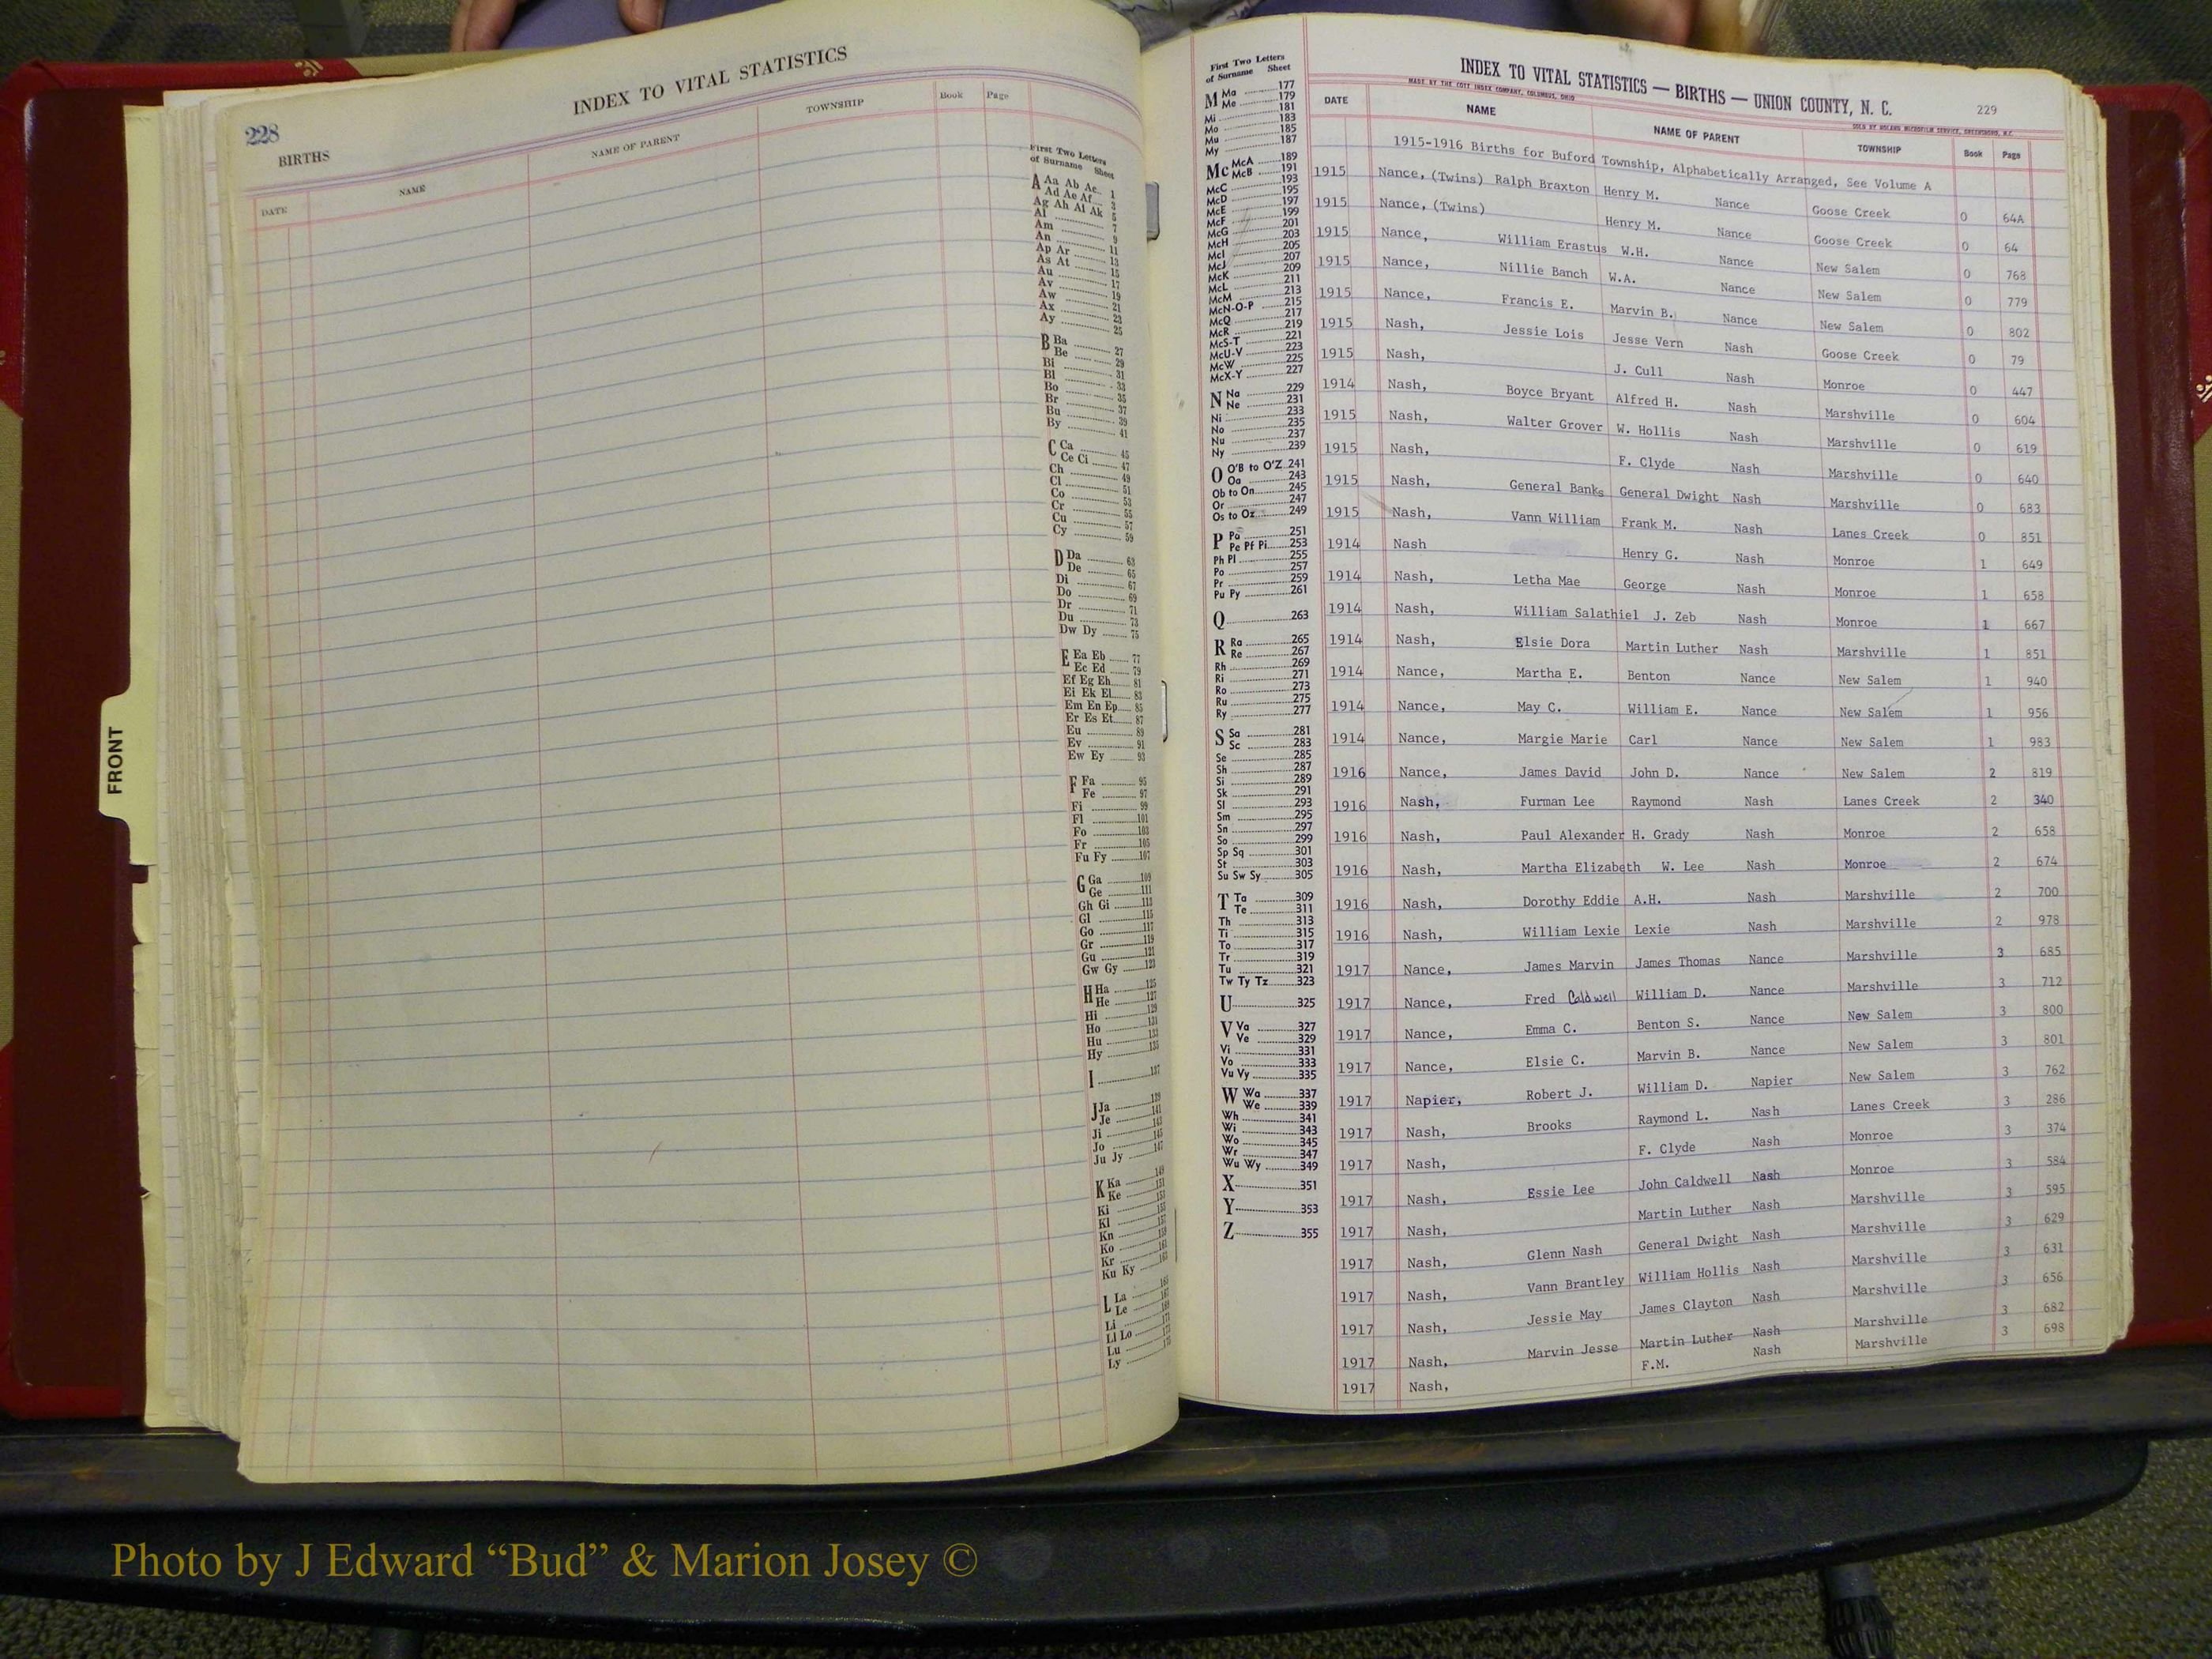 228
INDEX TO VITAL STATISTICS
BIRTHS
DATE NAME NAME OF PARENT TOWNSHIP Book Page
First Two Letters
of Surname Sheet
A Aa Ab Ac 1
Ad Ae Af 3
Ag Ah Ai Ak 5
Al 7
Am 9
An 11
Ap Ar 13
As At 15
Au 17
Av 19
Aw 21
Ax 23
Ay 25
B Ba 27
Be 29
Bi 31
Bl 33
Bo 35
Br 37
Bu 39
By 41
C Ca 45
Ce Ci 47
Ch 49
Cl 51
Co 53
Cr 55
Cu 57
Cy 59
D Da 63
De 65
Di 67
Do 69
Dr 71
Du 73
Dw Dy 75
E Ea Eb 77
Ec Ed 79
Ef Eg Eh 81
Ei Ek El 83
Em En Ep 85
Er Es Et 87
Eu 89
Ev 91
Ew Ey 93
F Fa 95
Fe 97
Fi 99
Fl 101
Fo 103
Fr 105
Fu Fy 107
G Ga 109
Ge 111
Gh Gi 113
Gl 115
Go 117
Gr 119
Gu 121
Gw Gy 123
H Ha 125
He 127
Hi 129
Ho 131
Hu 133
Hy 135
I 137
J Ja 139
Je 141
Ji 143
Jo 145
Ju Jy 147
K Ka 149
Ke 151
Ki 153
Kl
Kn
Ko 161
Kr 163
Ku Ky
L La 165
Le 167
Li 169
Ll Lo 171
Lu 173
Ly 175
FRONT
First Two Letters
of Surname Sheet
M Ma 177
Me 179
Mi 181
Mo 183
Mu 185
My 187
Mc McA 189
McB 191
McC 193
McD 195
McE 197
McF 199
McG 201
McH 203
McI 205
McJ 207
McK 209
McL 211
McM 213
McN-O-P 215
McQ 217
McR 219
McS-T 221
McU-V 223
McW 225
McX-Y 227
N Na 229
Ne 231
Ni 233
No 235
Nu 237
Ny 239
O O'B to O'Z 241
Oa 243
Ob to On 245
Or 247
Os to Oz 249
P Pa 251
Pe Pf Pi 253
Ph Pl 255
Po 257
Pr 259
Pu Py 261
Q 263
R Ra 265
Re 267
Rh 269
Ri 271
Ro 273
Ru 275
Ry 277
S Sa 281
Sc 283
Se 285
Sh 287
Si 289
Sk 291
Sl 293
Sm 295
Sn 297
So 299
Sp Sq 301
St 303
Su Sw Sy 305
T Ta 309
Te 311
Th 313
Ti 315
To 317
Tr 319
Tu 321
Tw Ty Tz 323
U 325
V Va 327
Ve 329
Vi 331
Vo 333
Vu Vy 335
W Wa 337
We 339
Wh 341
Wi 343
Wo 345
Wr 347
Wu Wy 349
X 351
Y 353
Z 355
INDEX TO VITAL STATISTICS — BIRTHS — UNION COUNTY, N. C. 229
MADE BY THE COTT INDEX COMPANY, COLUMBUS, OHIO
SOLD BY ROLAND MICROFILM SERVICE, GREENSBORO, N.C.
DATE NAME NAME OF PARENT TOWNSHIP Book Page
1915-1916 Births for Buford Township, Alphabetically Arranged, See Volume A
1915 Nance, (Twins) Ralph Braxton Henry M. Nance Goose Creek 0 64A
1915 Nance, (Twins) Henry M. Nance Goose Creek 0 64
1915 Nance, William Erastus W.H. Nance New Salem 0 768
1915 Nance, Nillie Banch W.A. Nance New Salem 0 779
1915 Nance, Francis E. Marvin B. Nance New Salem 0 802
1915 Nash, Jessie Lois Jesse Vern Nash Goose Creek 0 79
1915 Nash, J. Cull Nash Monroe 0 447
1914 Nash, Boyce Bryant Alfred H. Nash Marshville 0 604
1915 Nash, Walter Grover W. Hollis Nash Marshville 0 619
1915 Nash, F. Clyde Nash Marshville 0 640
1915 Nash, General Banks General Dwight Nash Marshville 0 683
1915 Nash, Vann William Frank M. Nash Lanes Creek 0 851
1914 Nash Henry G. Nash Monroe 1 649
1914 Nash, Letha Mae George Nash Monroe 1 658
1914 Nash, William Salathiel J. Zeb Nash Monroe 1 667
1914 Nash, Elsie Dora Martin Luther Nash Marshville 1 851
1914 Nance, Martha E. Benton Nance New Salem 1 940
1914 Nance, May C. William E. Nance New Salem 1 956
1914 Nance, Margie Marie Carl Nance New Salem 1 983
1916 Nance, James David John D. Nance New Salem 2 819
1916 Nash, Furman Lee Raymond Nash Lanes Creek 2 340
1916 Nash, Paul Alexander H. Grady Nash Monroe 2 658
1916 Nash, Martha Elizabeth W. Lee Nash Monroe 2 674
1916 Nash, Dorothy Eddie A.H. Nash Marshville 2 700
1916 Nash, William Lexie Lexie Nash Marshville 2 978
1917 Nance, James Marvin James Thomas Nance Marshville 3 685
1917 Nance, Fred Caldwell William D. Nance Marshville 3 712
1917 Nance, Emma C. Benton S. Nance New Salem 3 800
1917 Nance, Elsie C. Marvin B. Nance New Salem 3 801
1917 Napier, Robert J. William D. Napier New Salem 3 762
1917 Nash, Brooks Raymond L. Nash Lanes Creek 3 286
1917 Nash, F. Clyde Nash Monroe 3 374
1917 Nash, Essie Lee John Caldwell Nash Monroe 3 584
1917 Nash, Martin Luther Nash Marshville 3 595
1917 Nash, Glenn Nash General Dwight Nash Marshville 3 629
1917 Nash, Vann Brantley William Hollis Nash Marshville 3 631
1917 Nash, Jessie May James Clayton Nash Marshville 3 656
1917 Nash, Marvin Jesse Martin Luther Nash Marshville 3 682
1917 Nash, F.M. Nash Marshville 3 698
Photo by J Edward “Bud” & Marion Josey ©